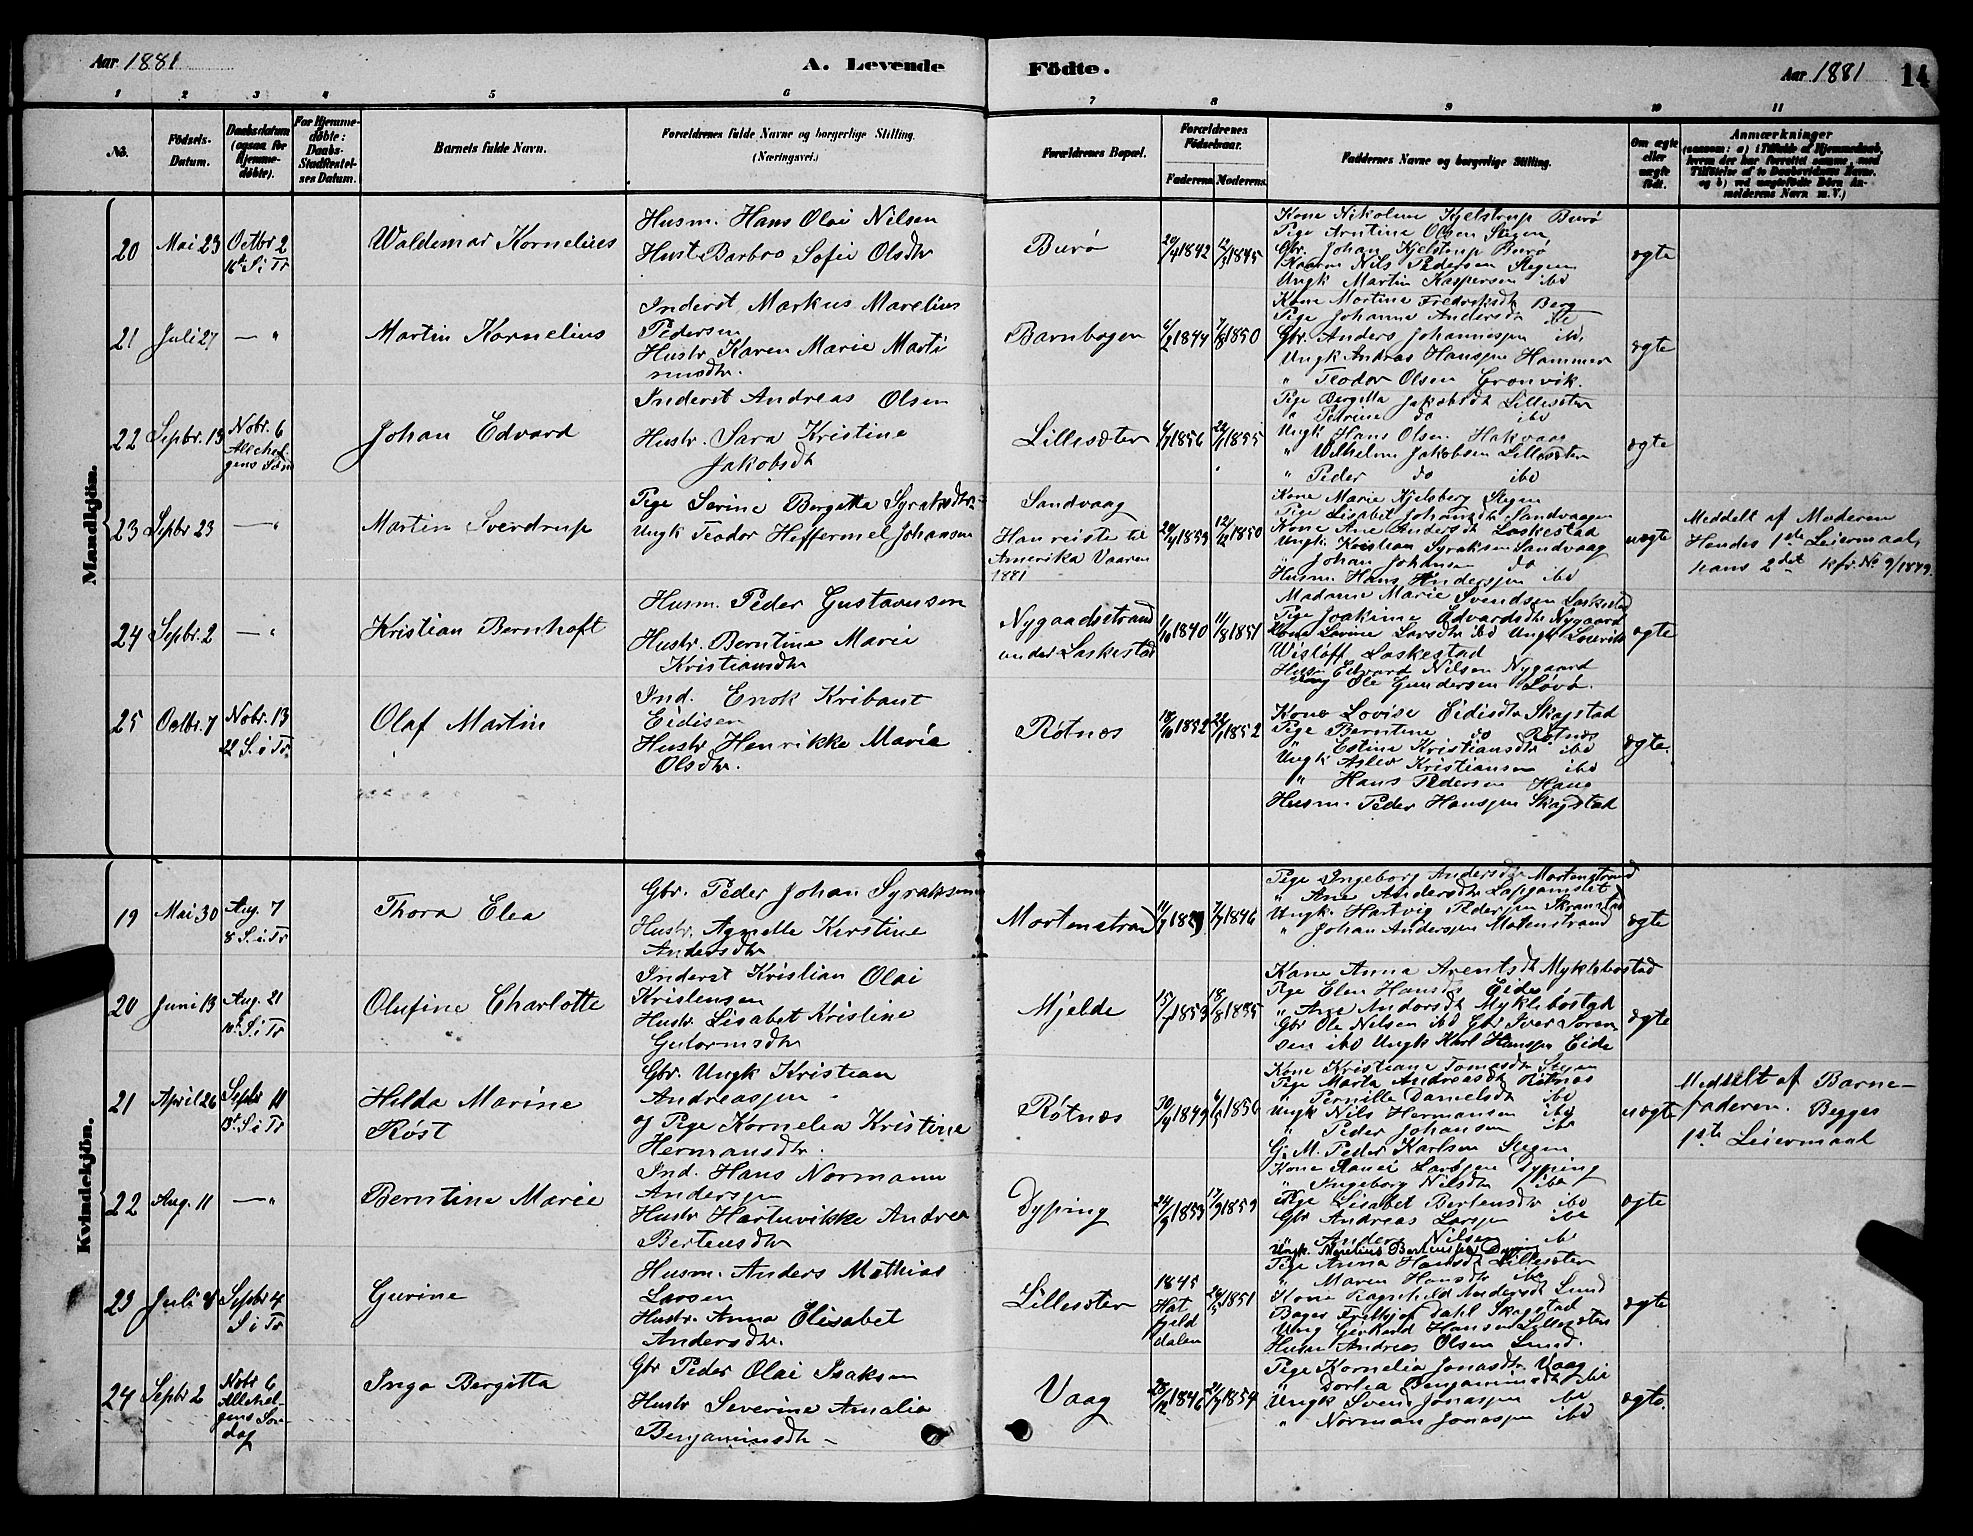 Aar 1881
A. Levende
Födte.
Aar 1881
14
1 2 3 4 5 6 7 8 9 10 11
No.
Födsels-
Datum.
Daabsdatum
(ogsaa for
Hjemme-
døbte).
For Hjemme-
døbte:
Daabs-
Stadfæstel-
ses Datum.
Barnets fulde Navn.
Forældrenes fulde Navne og borgerlige Stilling.
(Næringsvei.)
Forældrenes Bopæl.
Forældrenes
Födselsaar.
Faderens. Moderens.
Faddernes Navne og borgerlige Stilling.
Om ægte
eller
uægte
født.
Anmærkninger
(saasom: a) i Tilfælde af Hjemmedaab,
hvem der har forrettet samme, med
Tilföielse af to Daabsvidners Navne.
og b) ved uægtefödte Börn An-
melderens Navn m. V.)
Mandkjön.
20 Mai 23 Octbr 2
16de S. i Tr
Waldemar Kornelius
Husm. Hans Olai Nilsen
Hust. Barbro Sofie Olsdtr
Burø
20/4 1842 12/3 1845
Kone Nikoline Kjelstrup Burø
Pige Arntine Olsen Stegen
Gbr. Johan Kjelstrup Burø
Nils Pedersen Stegen
Ungk Martin Kaspersen ibd
ægte
21 Juli 27 — "
Martin Kornelius
Inderst Markus Marelius
Pedersen
Hustr. Karen Marie Marti
nusdtr.
Barnbogen
6/2 1844 7/8 1850
Kone Martine Fredriksdtr Berg
Pige Johanna Andersdtr
Gbr. Anders Johannespn ibd.
Ungk Andreas Hanspn Hammer
" Teodor Olsen Grønvik.
ægte
22 Sepbr. 13 Nobr. 6
Allehel-
gens Søn
Johan Edvard
Inderst Andreas Olsen
Hustr. Sara Kristine
Jakobsdtr
Lillesæter
1856 1855
Pige Bergitta Jakobsdtr Lillesæter
" Petrine do ibd
Ungk Hans Olsen Hakvaag
" Wilhelm Jakobsen Lillesæter
" Peder do ibd
ægte
23 Sepbr 23 — "
Martin Sverdrup
Pige Serine Bergitta Syraksdtr
Ungk Teodor Heffermel Johansen
Sandvaag
Han reiste til
Amerika Vaaren
1881
20/4 1859 12/12 1850
Kone Marie Kjelsberg Stegen
Pige Lisabet Johansdtr Sandvaagen
Kone Ane Andersdtr Laskestad
Ungk. Kristian Syraksen Sandvaag
Johan Johansen do
Husm. Hans Anderspn ibd
uægte
Meddelt af Moderen
Hendes 1ste Leiermaal,
hans 2det kfr. No 9/1879.
24 Sepbr. 2 — "
Kristian Bernhoft
Husm. Peder Gustavsen
Hustr. Berntine Marie
Kristiansdtr
Nygaadstrand
under Laskestad
11/10 1840 11/8 1851
Madame Marie Svendsen Laskestad
Pige Joakime Edvardsdtr Nygaard
Kone Lovine Larsdtr ibd Ungk Lovrits
Wisløff Laskestad
Husm Edvard Nilsen Nygaard
Ung Ole Gundersen Løvø.
ægte
25 Octbr. 7 Nobr. 13
22 S. i Tr.
Olaf Martin
Ind. Enok Kribant
Eidisen
Hustr Henrikke Marie
Olsdtr.
Røtnes
18/10 1852 22/1 1852
Kone Lovise Eidisdtr Skagstad
Pige Berntine do Røtnes
" Estine Kristiansdtr ibd
Ungk Aslev Kristiansen ibd
" Hans Pedersen Haug
Husm. Peder Hanspn Skagstad
ægte.
Kvindekjön.
19 Mai 30 Aug. 7
8 S. i Tr
Thora Elea
Gbr. Peder Johan Syraksen
Hustr. Agnelle Kirstine
Andersdtr
Mortenstrand
7/9 1846
Pige Ingeborg Andersdtr Mortenstrand
" Ane Andersdtr
Ungk. Hartvig Pederspn Skranstad
" Johan Anderspn Motenstrand
ægte
20 Juni 13 Aug. 21
10 S. i Tr
Olufine Charlotte
Inderst Kristian Olai
Kristensen
Hustr Lisabet Kristine
Gutormsdtr
Mjelde
15/7 1853 18/8 1855
Kone Anna Arentsdtr Myklebostad
Pige Elen Hansdtr Eide
" Ane Andersdtr Myklebostad
Gbr Ole Nilsen ibd Gbr Iver Søren
sen ibd Ungk Karl Hanspn Eide
ægte
21 April 26 Sepbr 11
13de S. i Tr
Hilda Marine
Røst
Gbr. Ungk Kristian
Andreaspn
og Pige Kornelia Kristine
Hermansdtr.
Røtnæs
30/4 1849 6/5 1856
Kone Kristiane Tomasdtr Stegen
Pige Marta Andreasdtr Røtnæs
" Pernille Danielsdtr ibd
Ungk Nils Hermansen ibd
" Peder Johansen ibd
G. M. Peder Karlsen Stegen
uægte
Meddelt af Barne-
faderen. Begges
1ste Leiermaal
22 Aug. 11 — "
Berntine Marie
Ind. Hans Normann
Anderspn
Hustr Hartuvikke Andrea
Bertensdtr
Dyping
24/9 1853 17/9 1859
Kone Ranei Larspn Dyping
" Ingeborg Nilsdtr ibd
Pige Lisabet Bertensdtr ibd
Gbr Andreas Larspn ibd
" Anders Nilsen ibd
Ungk. Marelius Bertenspn Dyping
ægte
23 Juli 8 Sepbr 4
S i Tr
Gurine
Husm. Anders Mathias
Larsen
Hustr. Anna Elisabet
Andersdtr.
Lillesæter
1845
Hat
fjeld
dalen
24/5 1851
Pige Anna Hansdtr Lillesæter
" Maren Hansdtr ibd
Kone Ragnhild Andersdtr Lund
Bager Fridhjof Dahl Skagstad
Ung Gerhard Hansen Lillesæter
Husm Andreas Olsen Lund.
ægte
24 Sepbr 2 Nobr 6
Allehel-
gens Søn
dag
Inga Bergitta
Gbr Peder Olai Isaksen
Hustr Severine Amalia
Benjaminsdtr —
Vaag
28/12 1846 21/7 1854
Pige Kornelia Jonasdtr. Vaag
" Dortea Benjaminsdtr ibd
Ungk Svend Jonaspn ibd
" Norman Jonaspn ibd
ægte.